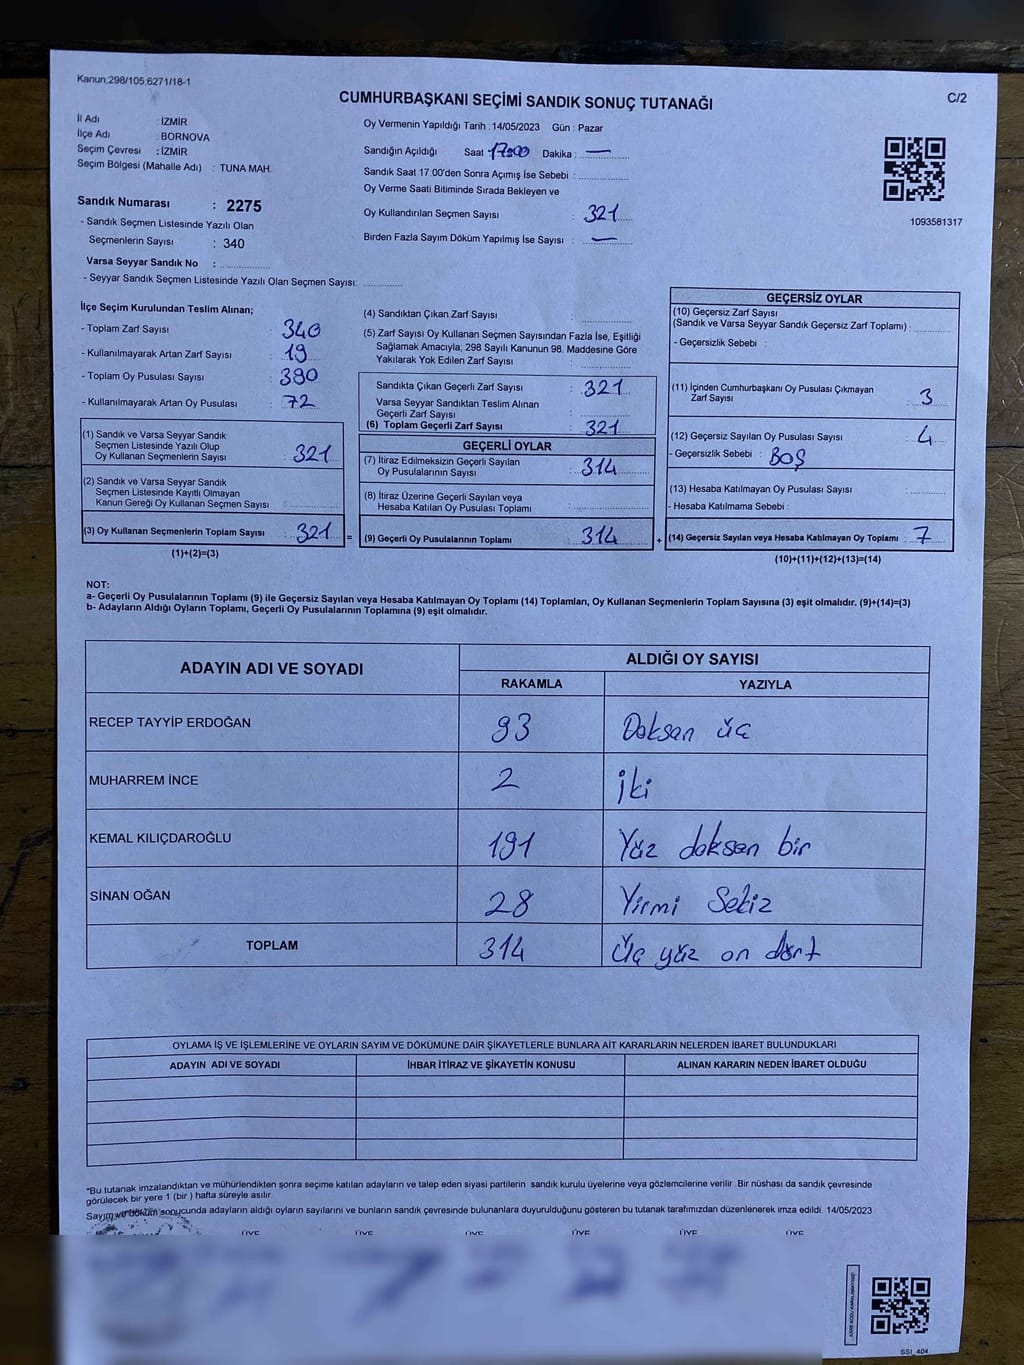 Kanun:298/105,6271/18-1
C/2
CUMHURBAŞKANI SEÇİMİ SANDIK SONUÇ TUTANAĞI
İl Adı : İZMİR
İlçe Adı : BORNOVA
Seçim Çevresi : İZMİR
Seçim Bölgesi (Mahalle Adı) : TUNA MAH.
Sandık Numarası : 2275
- Sandık Seçmen Listesinde Yazılı Olan
Seçmenlerin Sayısı : 340
Varsa Seyyar Sandık No :
- Seyyar Sandık Seçmen Listesinde Yazılı Olan Seçmen Sayısı:
Oy Vermenin Yapıldığı Tarih :14/05/2023 Gün : Pazar
Sandığın Açıldığı Saat 17:00 Dakika : —
Sandık Saat 17:00'den Sonra Açımış İse Sebebi :
Oy Verme Saati Bitiminde Sırada Bekleyen ve
Oy Kullandırılan Seçmen Sayısı : 321
Birden Fazla Sayım Döküm Yapılmış İse Sayısı : —
1093581317
İlçe Seçim Kurulundan Teslim Alınan;
- Toplam Zarf Sayısı : 340
- Kullanılmayarak Artan Zarf Sayısı : 19
- Toplam Oy Pusulası Sayısı : 390
- Kullanılmayarak Artan Oy Pusulası : 72
(1) Sandık ve Varsa Seyyar Sandık
Seçmen Listesinde Yazılı Olup
Oy Kullanan Seçmenlerin Sayısı : 321
(2) Sandık ve Varsa Seyyar Sandık
Seçmen Listesinde Kayıtlı Olmayan
Kanun Gereği Oy Kullanan Seçmen Sayısı :
(3) Oy Kullanan Seçmenlerin Toplam Sayısı : 321
(1)+(2)=(3)
=
(4) Sandıktan Çıkan Zarf Sayısı :
(5) Zarf Sayısı Oy Kullanan Seçmen Sayısından Fazla İse, Eşitliği
Sağlamak Amacıyla; 298 Sayılı Kanunun 98. Maddesine Göre
Yakılarak Yok Edilen Zarf Sayısı :
Sandıkta Çıkan Geçerli Zarf Sayısı : 321
Varsa Seyyar Sandıktan Teslim Alınan
Geçerli Zarf Sayısı :
(6) Toplam Geçerli Zarf Sayısı : 321
GEÇERLİ OYLAR
(7) İtiraz Edilmeksizin Geçerli Sayılan
Oy Pusulalarının Sayısı : 314
(8) İtiraz Üzerine Geçerli Sayılan veya
Hesaba Katılan Oy Pusulası Toplamı :
(9) Geçerli Oy Pusulalarının Toplamı : 314
+
GEÇERSİZ OYLAR
(10) Geçersiz Zarf Sayısı
(Sandık ve Varsa Seyyar Sandık Geçersiz Zarf Toplamı) :
- Geçersizlik Sebebi :
(11) İçinden Cumhurbaşkanı Oy Pusulası Çıkmayan
Zarf Sayısı : 3
(12) Geçersiz Sayılan Oy Pusulası Sayısı : 4
- Geçersizlik Sebebi : BOŞ
(13) Hesaba Katılmayan Oy Pusulası Sayısı :
- Hesaba Katılmama Sebebi :
(14) Geçersiz Sayılan veya Hesaba Katılmayan Oy Toplamı : 7
(10)+(11)+(12)+(13)=(14)
NOT:
a- Geçerli Oy Pusulalarının Toplamı (9) ile Geçersiz Sayılan veya Hesaba Katılmayan Oy Toplamı (14) Toplamları, Oy Kullanan Seçmenlerin Toplam Sayısına (3) eşit olmalıdır. (9)+(14)=(3)
b- Adayların Aldığı Oyların Toplamı, Geçerli Oy Pusulalarının Toplamına (9) eşit olmalıdır.
ADAYIN ADI VE SOYADI ALDIĞI OY SAYISI
RAKAMLA YAZIYLA
RECEP TAYYİP ERDOĞAN 93 Doksan üç
MUHARREM İNCE 2 İki
KEMAL KILIÇDAROĞLU 191 Yüz doksan bir
SİNAN OĞAN 28 Yirmi Sekiz
TOPLAM 314 Üç yüz on dört
OYLAMA İŞ VE İŞLEMLERİNE VE OYLARIN SAYIM VE DÖKÜMÜNE DAİR ŞİKAYETLERLE BUNLARA AİT KARARLARIN NELERDEN İBARET BULUNDUKLARI
ADAYIN ADI VE SOYADI İHBAR İTİRAZ VE ŞİKAYETİN KONUSU ALINAN KARARIN NEDEN İBARET OLDUĞU
*Bu tutanak imzalandıktan ve mühürlendikten sonra seçime katılan adayların ve talep eden siyasi partilerin sandık kurulu üyelerine veya gözlemcilerine verilir. Bir nüshası da sandık çevresinde
görülecek bir yere 1 (bir ) hafta süreyle asılır.
Sayım ve döküm sonucunda adayların aldığı oyların sayılarını ve bunların sandık çevresinde bulunanlara duyurulduğunu gösteren bu tutanak tarafımızdan düzenlenerek imza edildi. 14/05/2023
ÜYE ÜYE ÜYE ÜYE ÜYE ÜYE
KARE KODU KARALAMAYINIZ!
SSI_404